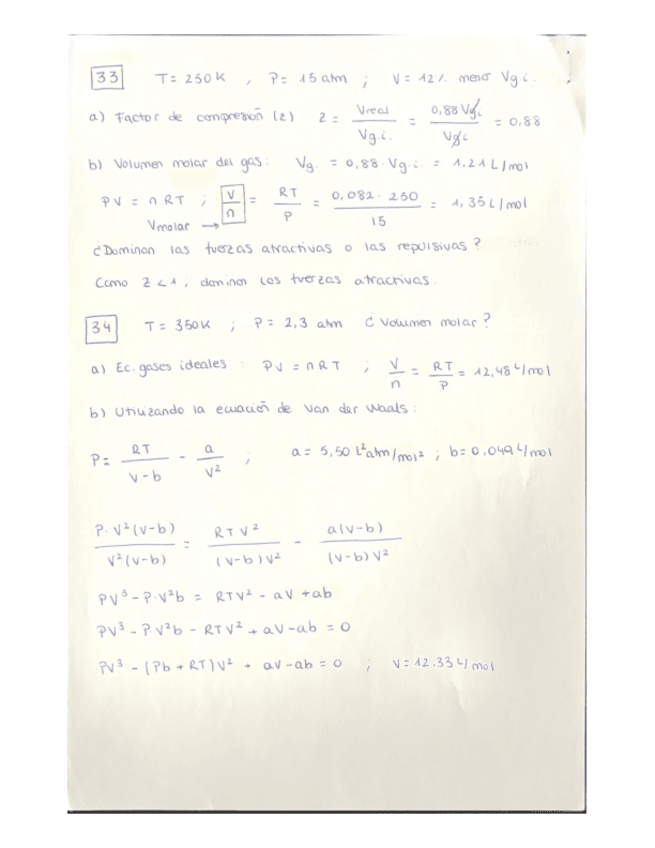 33 T = 250 K , P = 15 atm ; V = 12 % menor Vg.i.
a) Factor de compresión (z) z = Vreal / Vg.i. = 0,88 Vgi / Vgi = 0,88
b) Volumen molar del gas: Vg. = 0,88 · Vg.i. = 1,21 L/mol
PV = nRT ; V/n = RT/P = 0,082 · 250 / 15 = 1,35 L/mol
Vmolar →
¿Dominan las fuerzas atractivas o las repulsivas?
Como z < 1, dominan las fuerzas atractivas.
34 T = 350K ; P = 2,3 atm ¿Volumen molar?
a) Ec. gases ideales : PV = nRT ; V/n = RT/P = 12,48 L/mol
b) Utilizando la ecuación de Van der Waals:
P = RT / V-b - a / V² ; a = 5,50 L²atm/mol² ; b = 0.049 L/mol
P·V²(V-b) / V²(V-b) = RTV² / (V-b)V² - a(V-b) / (V-b)V²
PV³ - P·V²b = RTV² - aV + ab
PV³ - P·V²b - RTV² + aV - ab = 0
PV³ - (Pb + RT)V² + aV - ab = 0 ; V = 12.33 L/mol